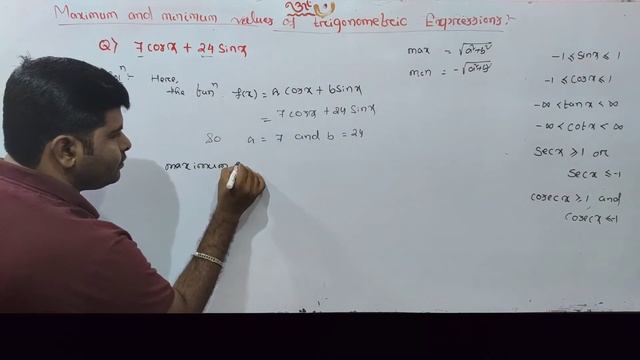 Maximum and minimum values of trigonometric Expressions:-
Q> 7 cosx + 24 sinx
Here,
the funⁿ f(x) = a cosx + b sinx
= 7 cosx + 24 sinx
So a = 7 and b = 24
maximum
max = √a²+b²
min = -√a²+b²
-1 ≤ sinx ≤ 1
-1 ≤ cosx ≤ 1
-∞ < tanx < ∞
-∞ < cotx < ∞
Secx ≥ 1 or
Secx ≤ -1
cosecx ≥ 1 and
cosecx ≤ -1